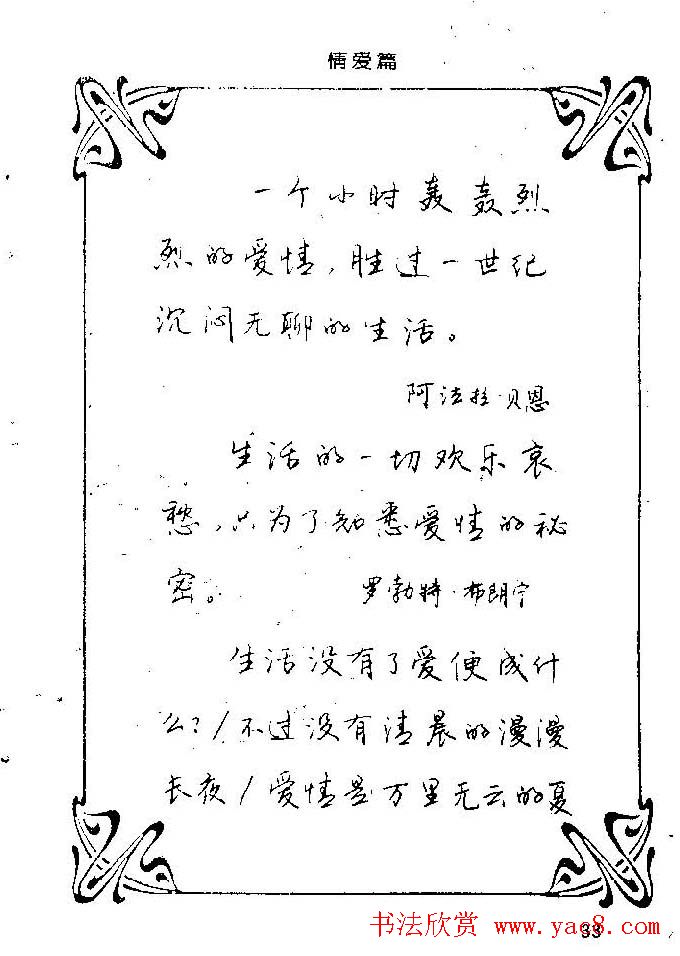 情爱篇
一个小时轰轰烈
烈的爱情,胜过一世纪
沉闷无聊的生活。
阿法拉·贝恩
生活的一切欢乐哀
愁,只为了知悉爱情的秘
密。 罗勃特·布朗宁
生活没有了爱便成什
么?/不过没有清晨的漫漫
长夜/爱情是万里无云的夏
33
书法欣赏 www.yac8.com